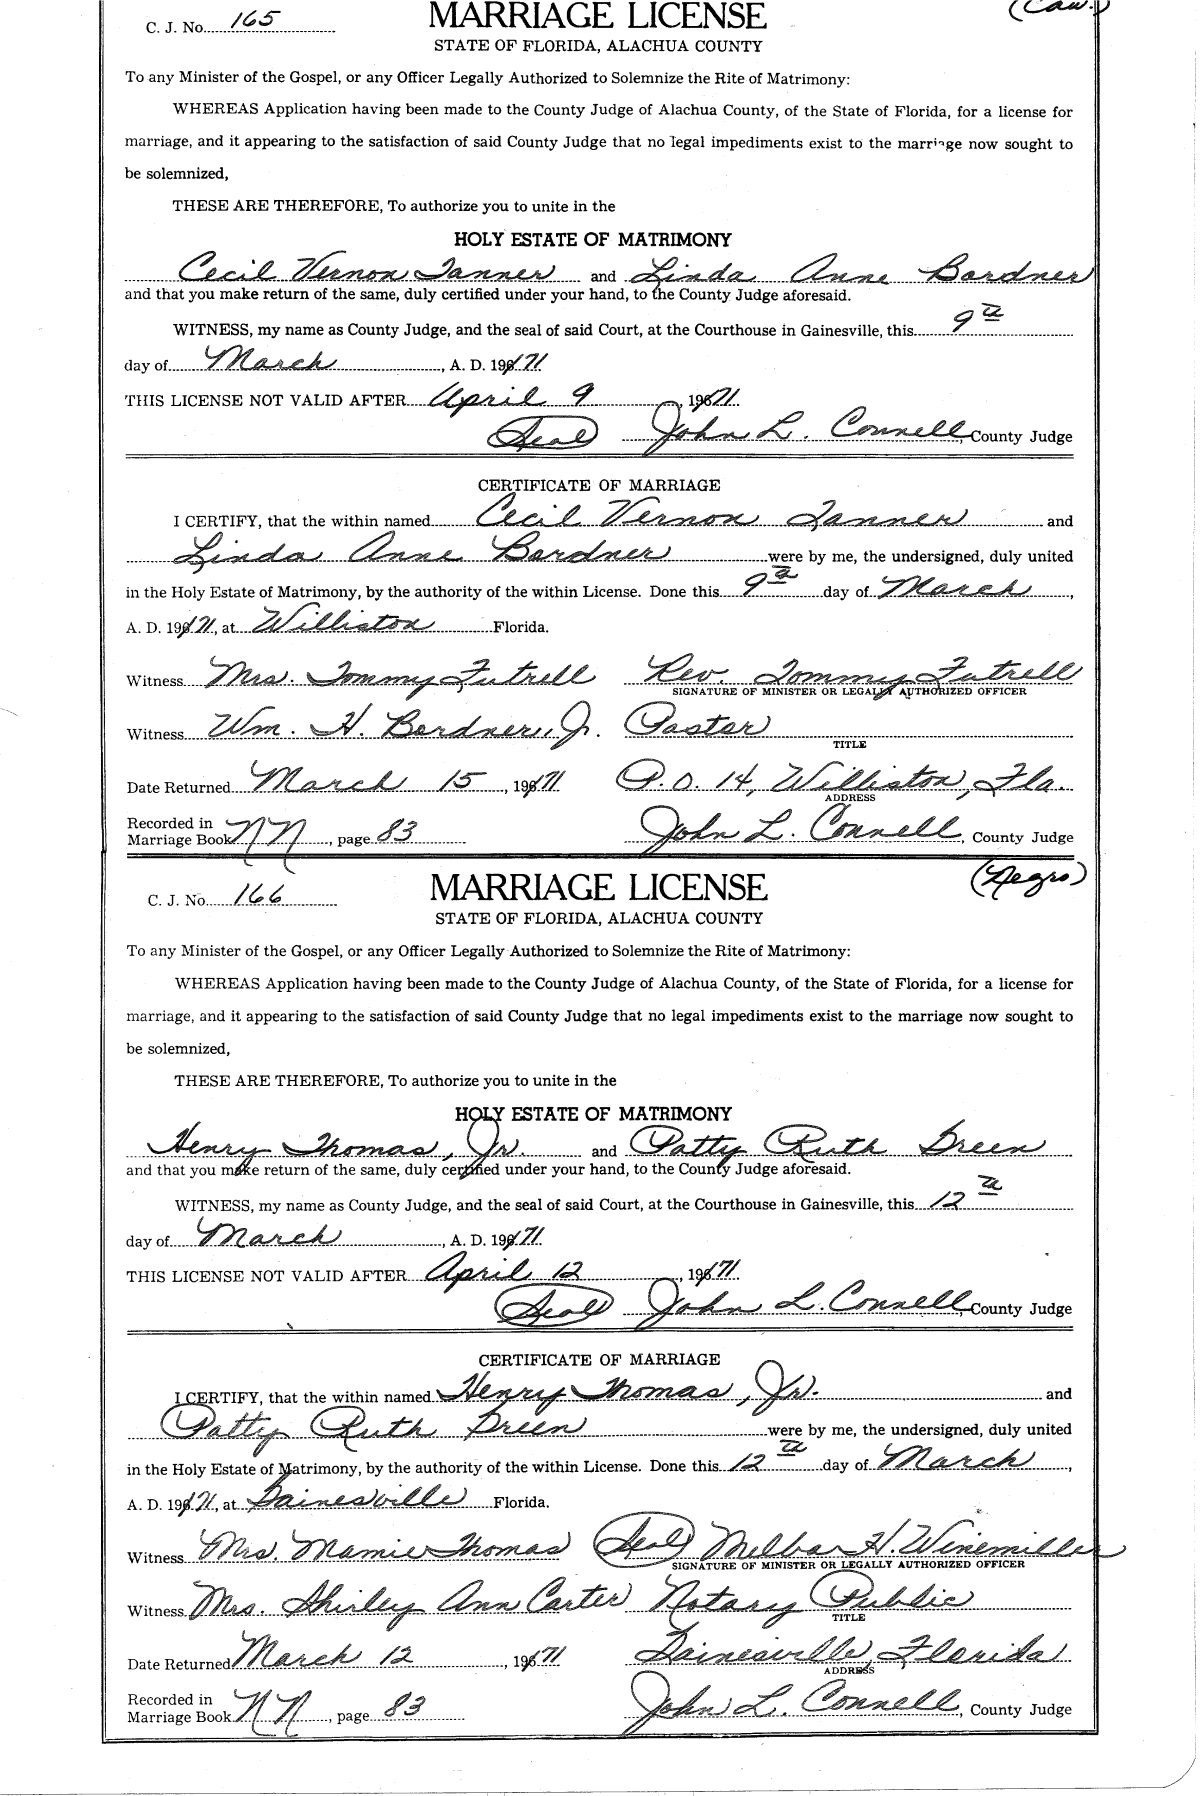 (Cau.)
C. J. No. 165
MARRIAGE LICENSE
STATE OF FLORIDA, ALACHUA COUNTY
To any Minister of the Gospel, or any Officer Legally Authorized to Solemnize the Rite of Matrimony:
WHEREAS Application having been made to the County Judge of Alachua County, of the State of Florida, for a license for
marriage, and it appearing to the satisfaction of said County Judge that no legal impediments exist to the marriage now sought to
be solemnized,
THESE ARE THEREFORE, To authorize you to unite in the
HOLY ESTATE OF MATRIMONY
Cecil Vernon Tanner and Linda Anne Bordner
and that you make return of the same, duly certified under your hand, to the County Judge aforesaid.
WITNESS, my name as County Judge, and the seal of said Court, at the Courthouse in Gainesville, this 9th
day of March, A. D. 1971.
THIS LICENSE NOT VALID AFTER April 9, 1971.
(Seal) John L. Connell, County Judge
CERTIFICATE OF MARRIAGE
I CERTIFY, that the within named Cecil Vernon Tanner and
Linda Anne Bordner were by me, the undersigned, duly united
in the Holy Estate of Matrimony, by the authority of the within License. Done this 9th day of March,
A. D. 1971, at Williston Florida.
Witness Mrs. Tommy Futrell Rev. Tommy Futrell
SIGNATURE OF MINISTER OR LEGALLY AUTHORIZED OFFICER
Witness Wm. H. Bordner, Jr. Pastor
TITLE
Date Returned March 15, 1971 P.O. 14, Williston, Fla.
ADDRESS
Recorded in
Marriage Book NN, page 83 John L. Connell, County Judge
(Negro)
C. J. No. 166
MARRIAGE LICENSE
STATE OF FLORIDA, ALACHUA COUNTY
To any Minister of the Gospel, or any Officer Legally Authorized to Solemnize the Rite of Matrimony:
WHEREAS Application having been made to the County Judge of Alachua County, of the State of Florida, for a license for
marriage, and it appearing to the satisfaction of said County Judge that no legal impediments exist to the marriage now sought to
be solemnized,
THESE ARE THEREFORE, To authorize you to unite in the
HOLY ESTATE OF MATRIMONY
Henry Thomas, Jr. and Patty Ruth Green
and that you make return of the same, duly certified under your hand, to the County Judge aforesaid.
WITNESS, my name as County Judge, and the seal of said Court, at the Courthouse in Gainesville, this 12th
day of March, A. D. 1971.
THIS LICENSE NOT VALID AFTER April 12, 1971.
(Seal) John L. Connell, County Judge
CERTIFICATE OF MARRIAGE
I CERTIFY, that the within named Henry Thomas, Jr. and
Patty Ruth Green were by me, the undersigned, duly united
in the Holy Estate of Matrimony, by the authority of the within License. Done this 12th day of March,
A. D. 1971, at Gainesville Florida.
Witness Mrs. Mamie Thomas (Seal) Melba H. Winemiller
SIGNATURE OF MINISTER OR LEGALLY AUTHORIZED OFFICER
Witness Mrs. Shirley Ann Carter Notary Public
TITLE
Date Returned March 12, 1971 Gainesville, Florida
ADDRESS
Recorded in
Marriage Book NN, page 83 John L. Connell, County Judge